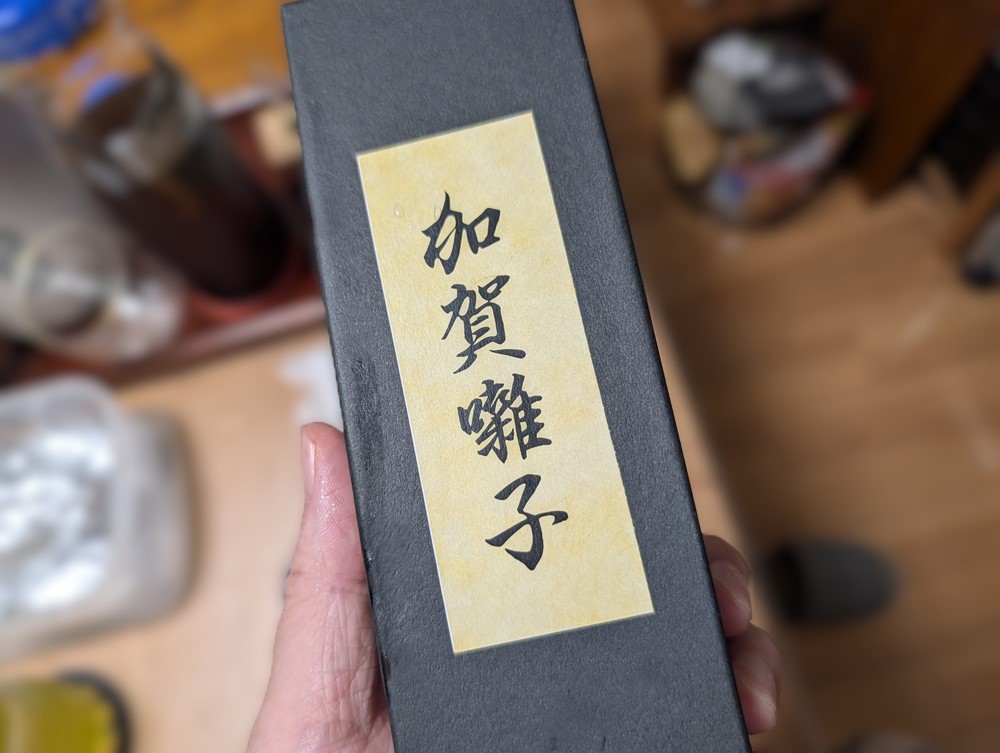 加賀囃子